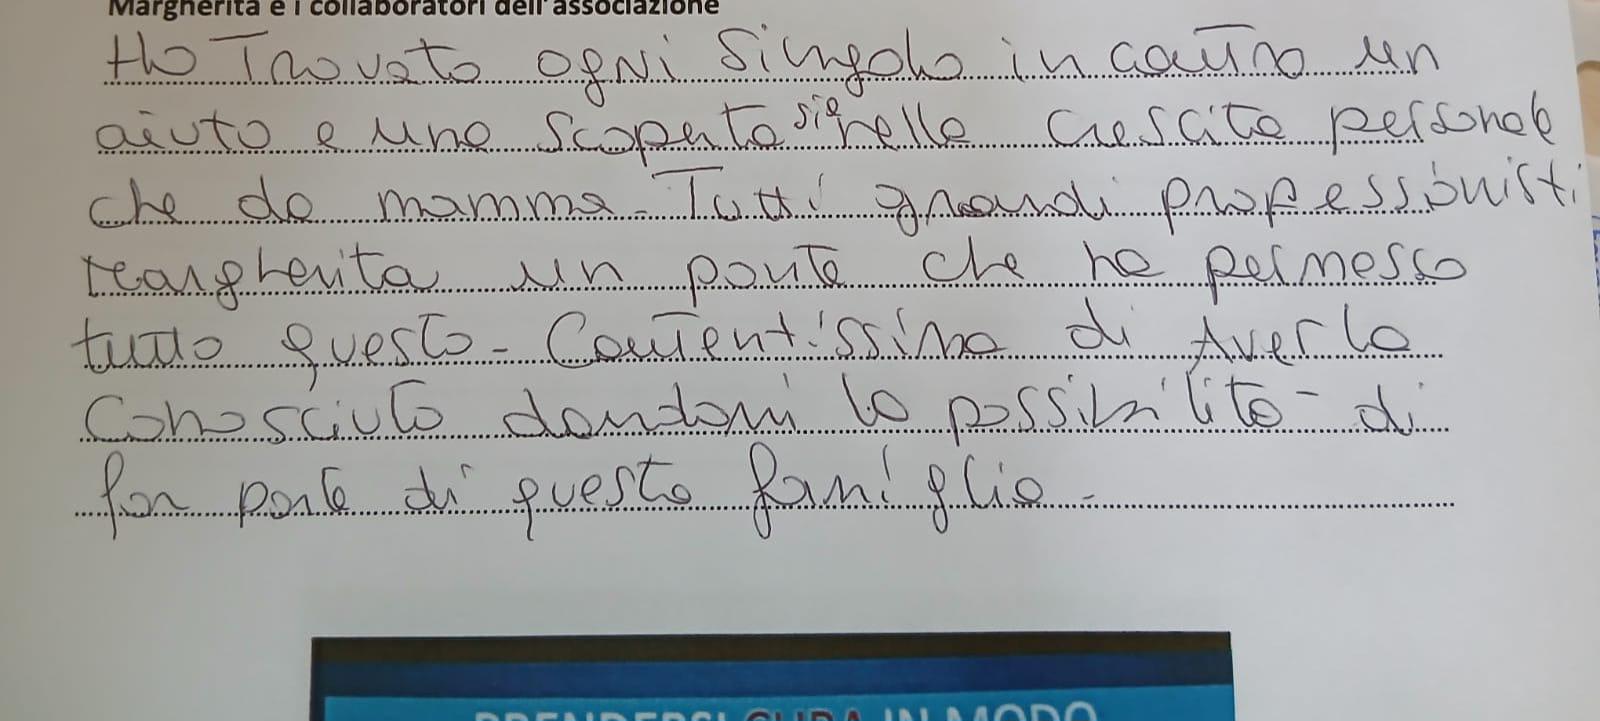 Margherita e i collaboratori dell'associazione
Ho Trovato ogni singolo incontro un
aiuto e una scoperta sia nella crescita personale
che da mamma - Tutti grandi professionisti
Margherita un ponte che ha permesso
tutto questo - Contentissima di Averla
Conosciuta dandomi la possibilità - di
far parte di questa famiglia -
PRENDERSI CURA IN MODO